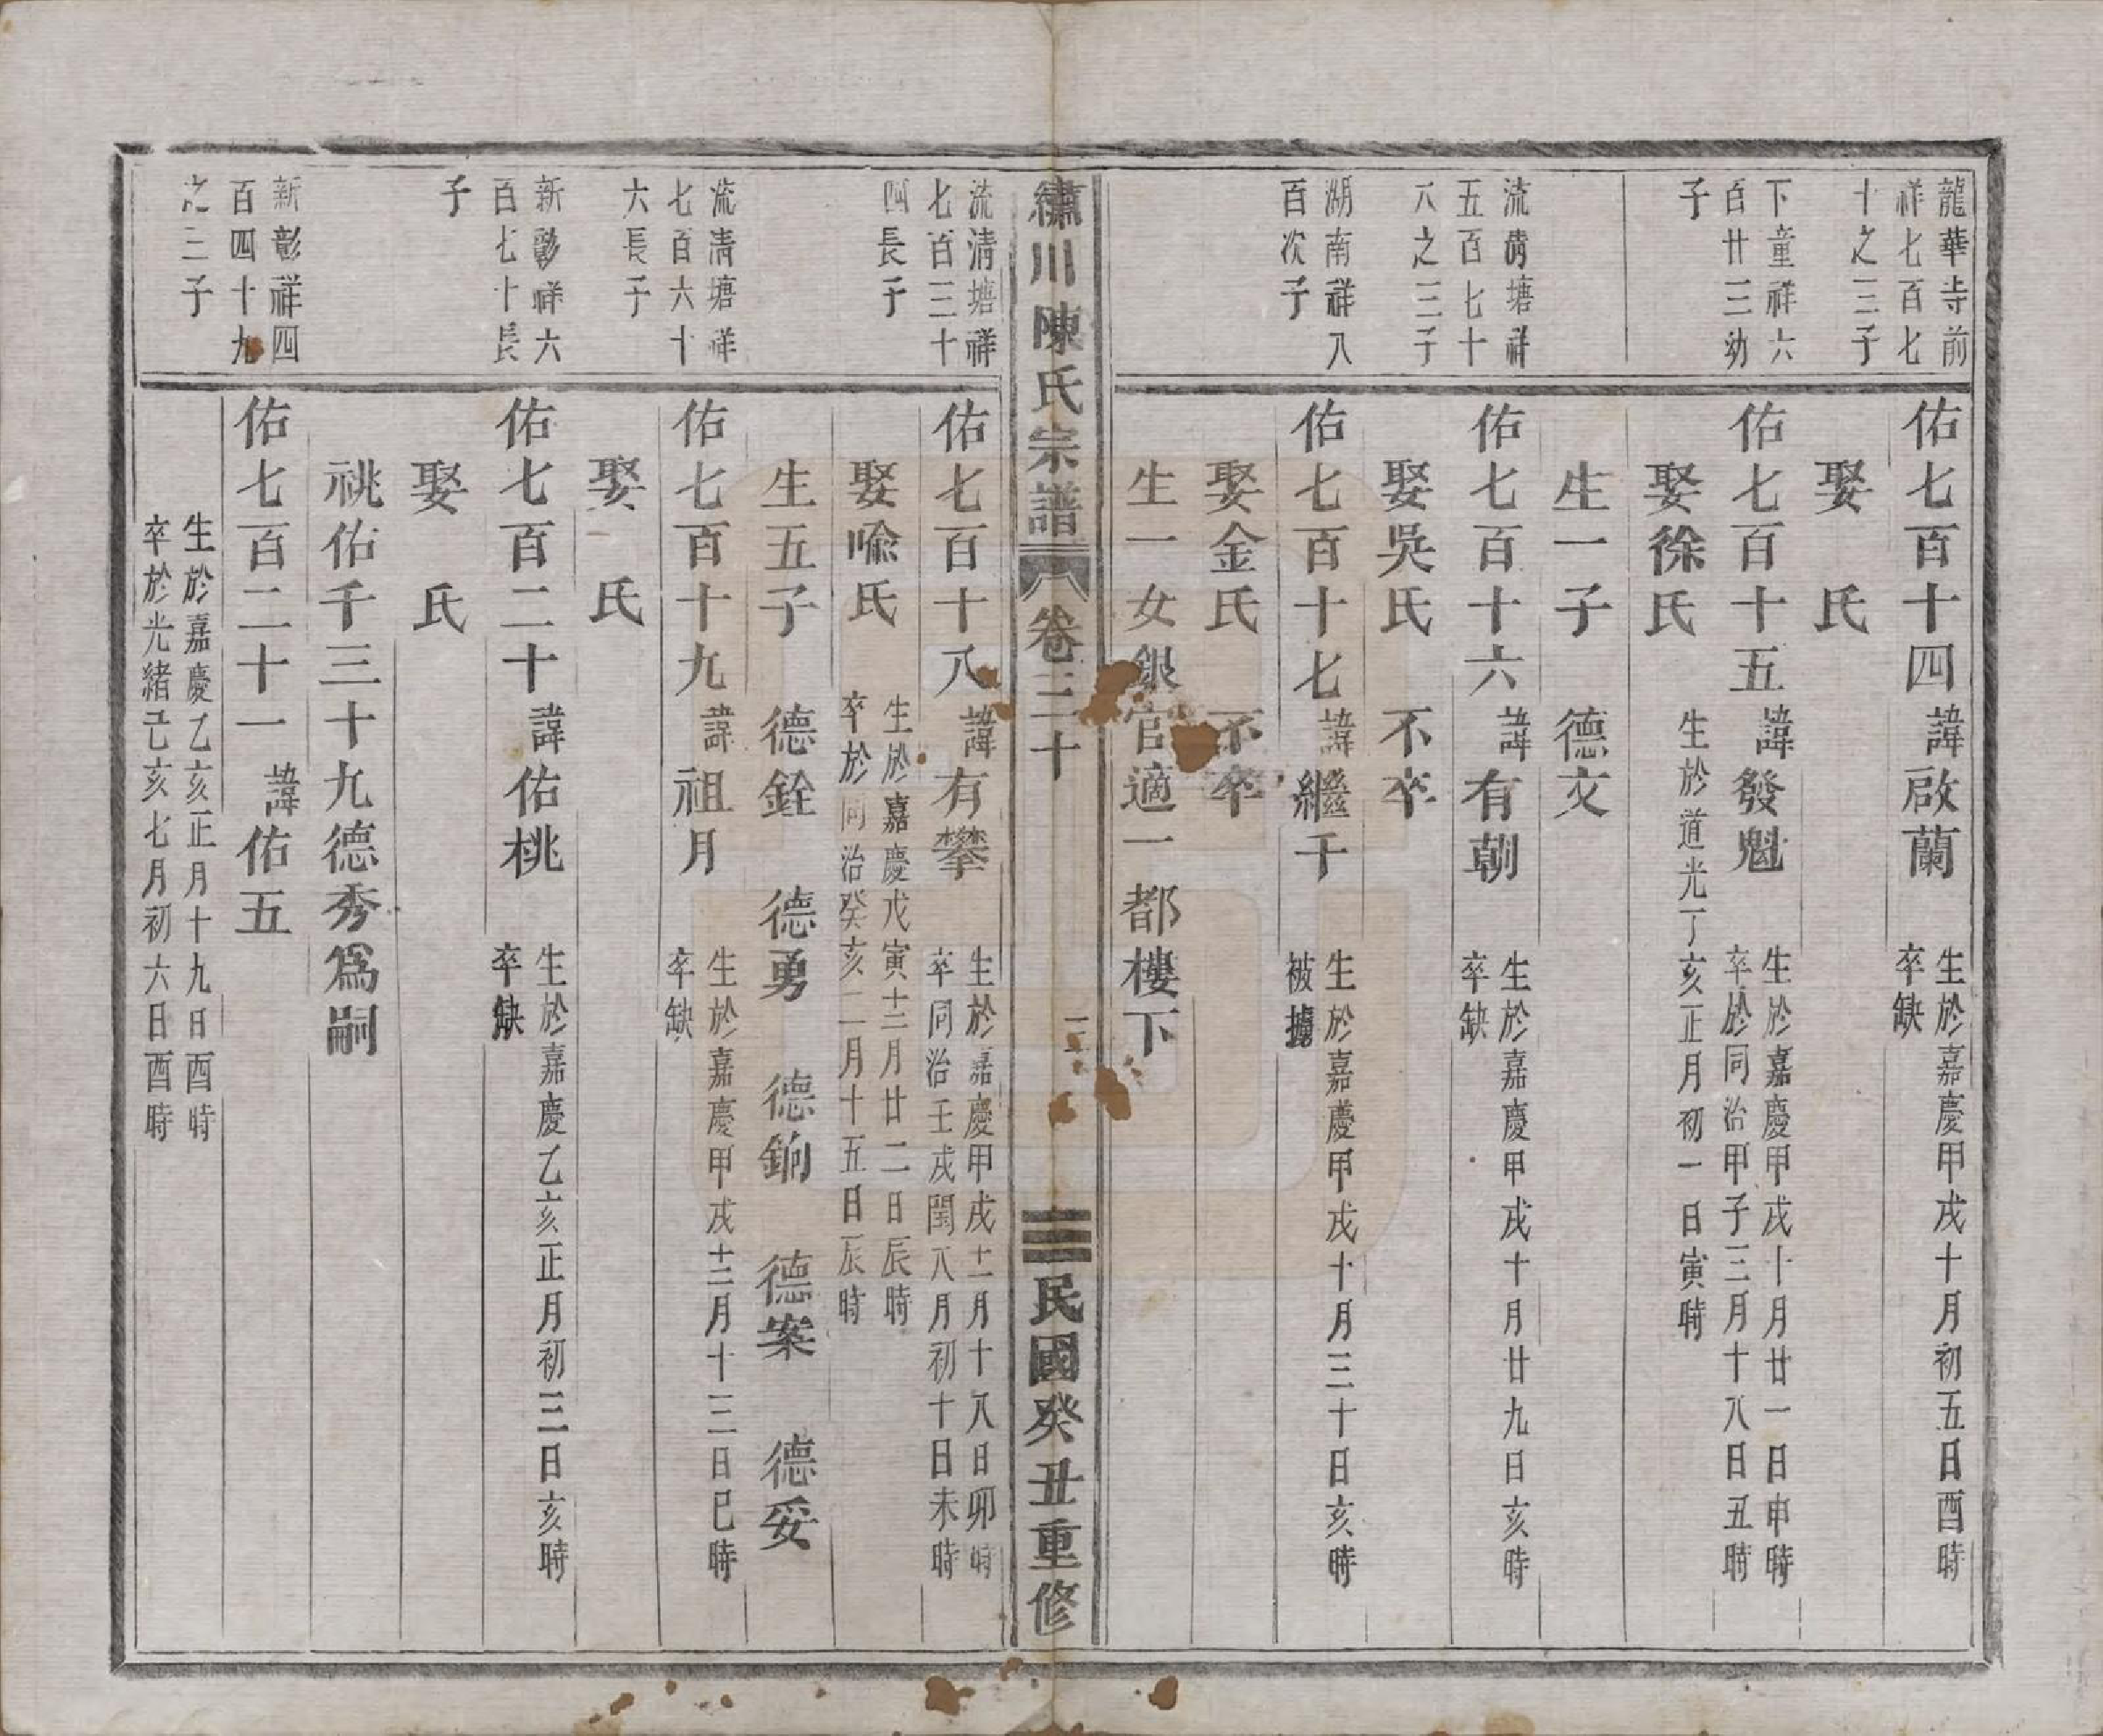 龍華寺前
祥七百七
十之三子
佑七百十四諱啟蘭
生於嘉慶甲戌十月初五日酉時
卒缺
娶 氏
下童祥六
百廿三幼
子
佑七百十五諱發魁
生於嘉慶甲戌十月廿一日申時
卒於同治甲子三月十八日丑時
娶徐氏
生於道光丁亥正月初一日寅時
生一子 德文
流清塘祥
五百七十
八之三子
佑七百十六諱有朝
生於嘉慶甲戌十月廿九日亥時
卒缺
娶吳氏 不卒
湖南祥八
百次子
佑七百十七諱繼千
生於嘉慶甲戌十月三十日亥時
被擄
娶金氏 不卒
生一女銀官適一都樓下
繡川陳氏宗譜 卷三十 民國癸丑重修
流清塘祥
七百三十
四長子
佑七百十八諱有攀
生於嘉慶甲戌十一月十八日卯時
卒同治壬戌閏八月初十日未時
娶喻氏
生於嘉慶戊寅十二月廿二日辰時
卒於同治癸亥二月十五日辰時
生五子 德銓 德勇 德銄 德案 德妥
流清塘祥
七百六十
六長子
佑七百十九諱祖月
生於嘉慶甲戌十二月十三日巳時
卒缺
娶 氏
新彰祥六
百七十長
子
佑七百二十諱佑桃
生於嘉慶乙亥正月初三日亥時
卒缺
娶 氏
祧佑千三十九德秀爲嗣
新彰祥四
百四十九
之三子
佑七百二十一諱佑五
生於嘉慶乙亥正月十九日酉時
卒於光緒己亥七月初六日酉時